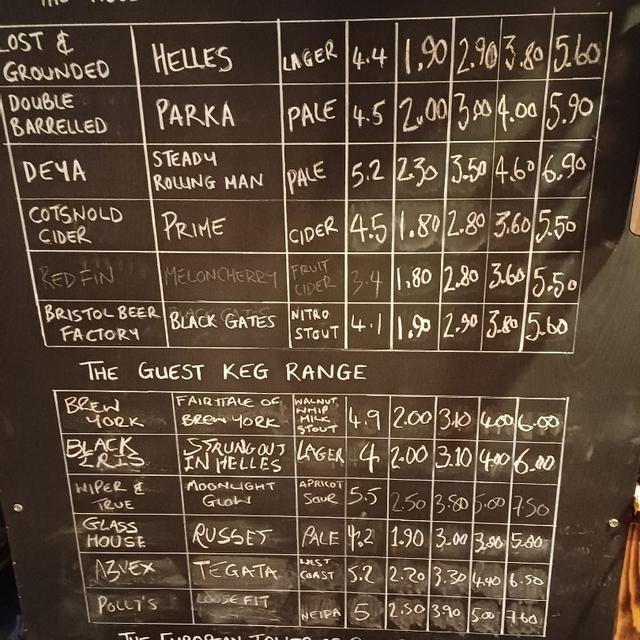 LOST & GROUNDED HELLES LAGER 4.4 1.90 2.90 3.80 5.60
DOUBLE BARRELLED PARKA PALE 4.5 2.00 3.00 4.00 5.90
DEYA STEADY ROLLING MAN PALE 5.2 2.30 3.50 4.60 6.90
COTSNOLD CIDER PRIME CIDER 4.5 1.80 2.80 3.60 5.50
RED FIN MELONCHERRY FRUIT CIDER 3.4 1.80 2.80 3.60 5.50
BRISTOL BEER FACTORY BLACK GATES NITRO STOUT 4.1 1.90 2.90 3.80 5.60
THE GUEST KEG RANGE
BREW YORK FAIRYTALE OF BREW YORK WALNUT WHIP MILK STOUT 4.9 2.00 3.10 4.00 6.00
BLACK IRIS STRUNG OUT IN HELLES LAGER 4 2.00 3.10 4.00 6.00
WIPER & TRUE MOONLIGHT GLOW APRICOT SOUR 5.5 2.50 3.80 5.00 7.50
GLASS HOUSE RUSSET PALE 4.2 1.90 3.00 5.80
AZVEX TEGATA WEST COAST 5.2 2.20 3.30 4.40 6.50
POLLY'S LOOSE FIT NEIPA 5 2.50 3.90 5.00 7.60
THE EUROPEAN